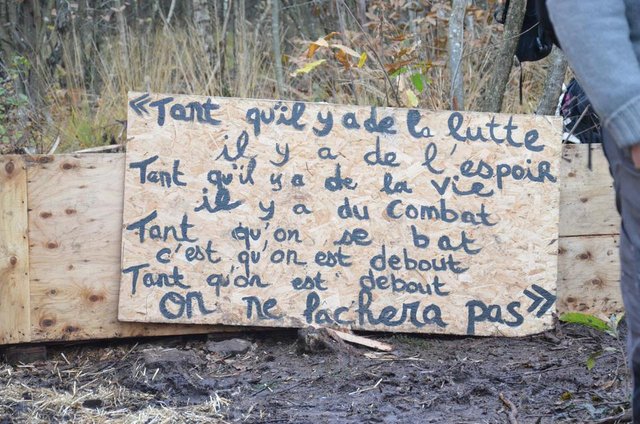 « Tant qu'il y a de la lutte
il y a de l'espoir
Tant qu'il y a de la vie
il y a du combat
Tant qu'on se bat
c'est qu'on est debout
Tant qu'on est debout
on ne lachera pas »